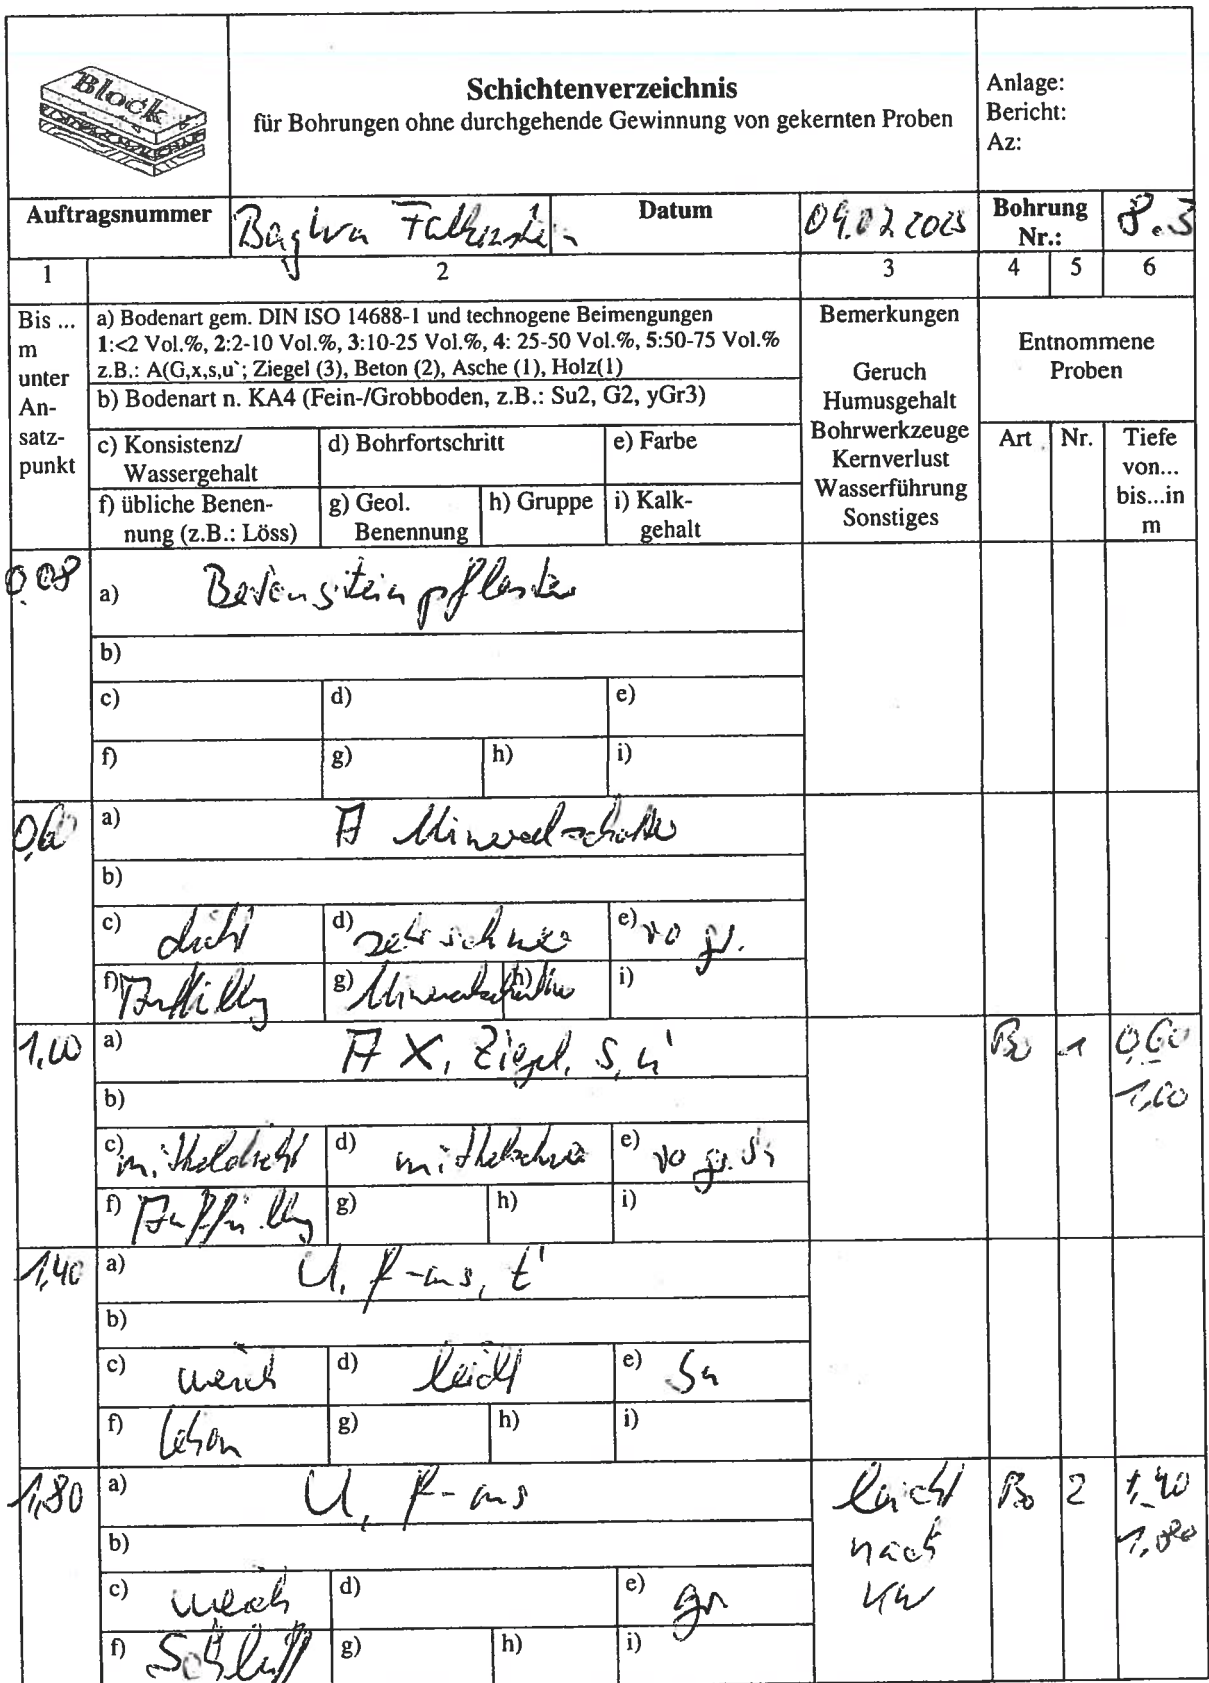 Block
Schichtenverzeichnis
für Bohrungen ohne durchgehende Gewinnung von gekernten Proben
Anlage:
Bericht:
Az:
Auftragsnummer
Datum
Bohrung
Nr.:
8.3
1
2
3
4
5
6
Bis ...
m
unter
An-
satz-
punkt
a) Bodenart gem. DIN ISO 14688-1 und technogene Beimengungen
1:<2 Vol.%, 2:2-10 Vol.%, 3:10-25 Vol.%, 4: 25-50 Vol.%, 5:50-75 Vol.%
z.B.: A(G,x,s,u`; Ziegel (3), Beton (2), Asche (1), Holz(1)
b) Bodenart n. KA4 (Fein-/Grobboden, z.B.: Su2, G2, yGr3)
c) Konsistenz/
Wassergehalt
d) Bohrfortschritt
e) Farbe
f) übliche Benen-
nung (z.B.: Löss)
g) Geol.
Benennung
h) Gruppe
i) Kalk-
gehalt
Bemerkungen
Geruch
Humusgehalt
Bohrwerkzeuge
Kernverlust
Wasserführung
Sonstiges
Entnommene
Proben
Art
Nr.
Tiefe
von...
bis...in
m
0,08
a) Betonsteinpflaster
b)
c)
d)
e)
f)
g)
h)
i)
0,60
a) A Mineralschotter
b)
c) dicht
d) sehr schwer
e)
f) Auffüllung
g) Mineralschotter
h)
i)
1,00
a) A X, Ziegel, s, u'
b)
c) mitteldicht
d) mittelschwer
e)
f) Auffüllung
g)
h)
i)
Bo
1
0,60
1,00
1,40
a) U, f-ms, t'
b)
c) weich
d) leicht
e)
f) Lehm
g)
h)
i)
1,80
a) U, f-ms
b)
c) weich
d)
e) gr
f) Schluff
g)
h)
i)
leicht
nach
KW
Bo
2
1,40
1,80